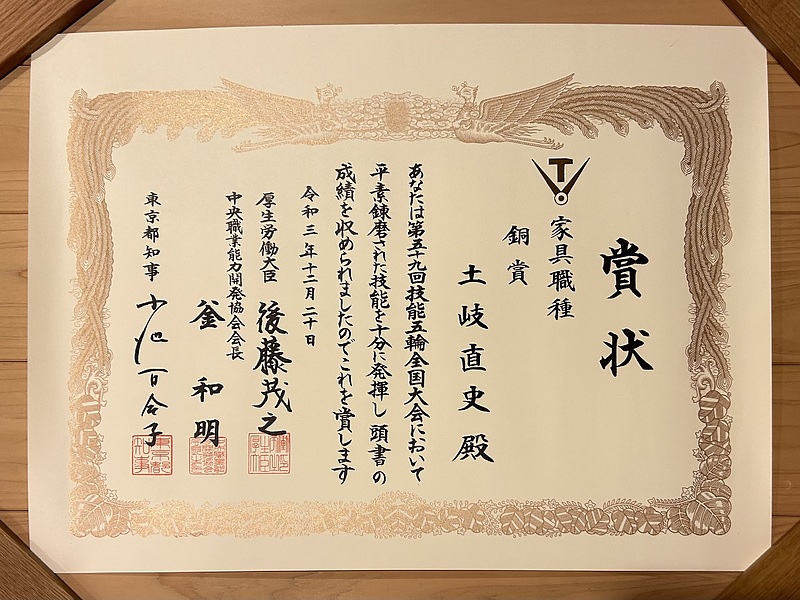 賞状
家具職種
銅賞
土岐直史殿
あなたは第五十九回技能五輪全国大会において
平素錬磨された技能を十分に発揮し頭書の
成績を収められましたのでこれを賞します
令和三年十二月二十日
厚生労働大臣 後藤茂之
中央職業能力開発協会会長
釜和明
東京都知事 小池百合子
東京都知事